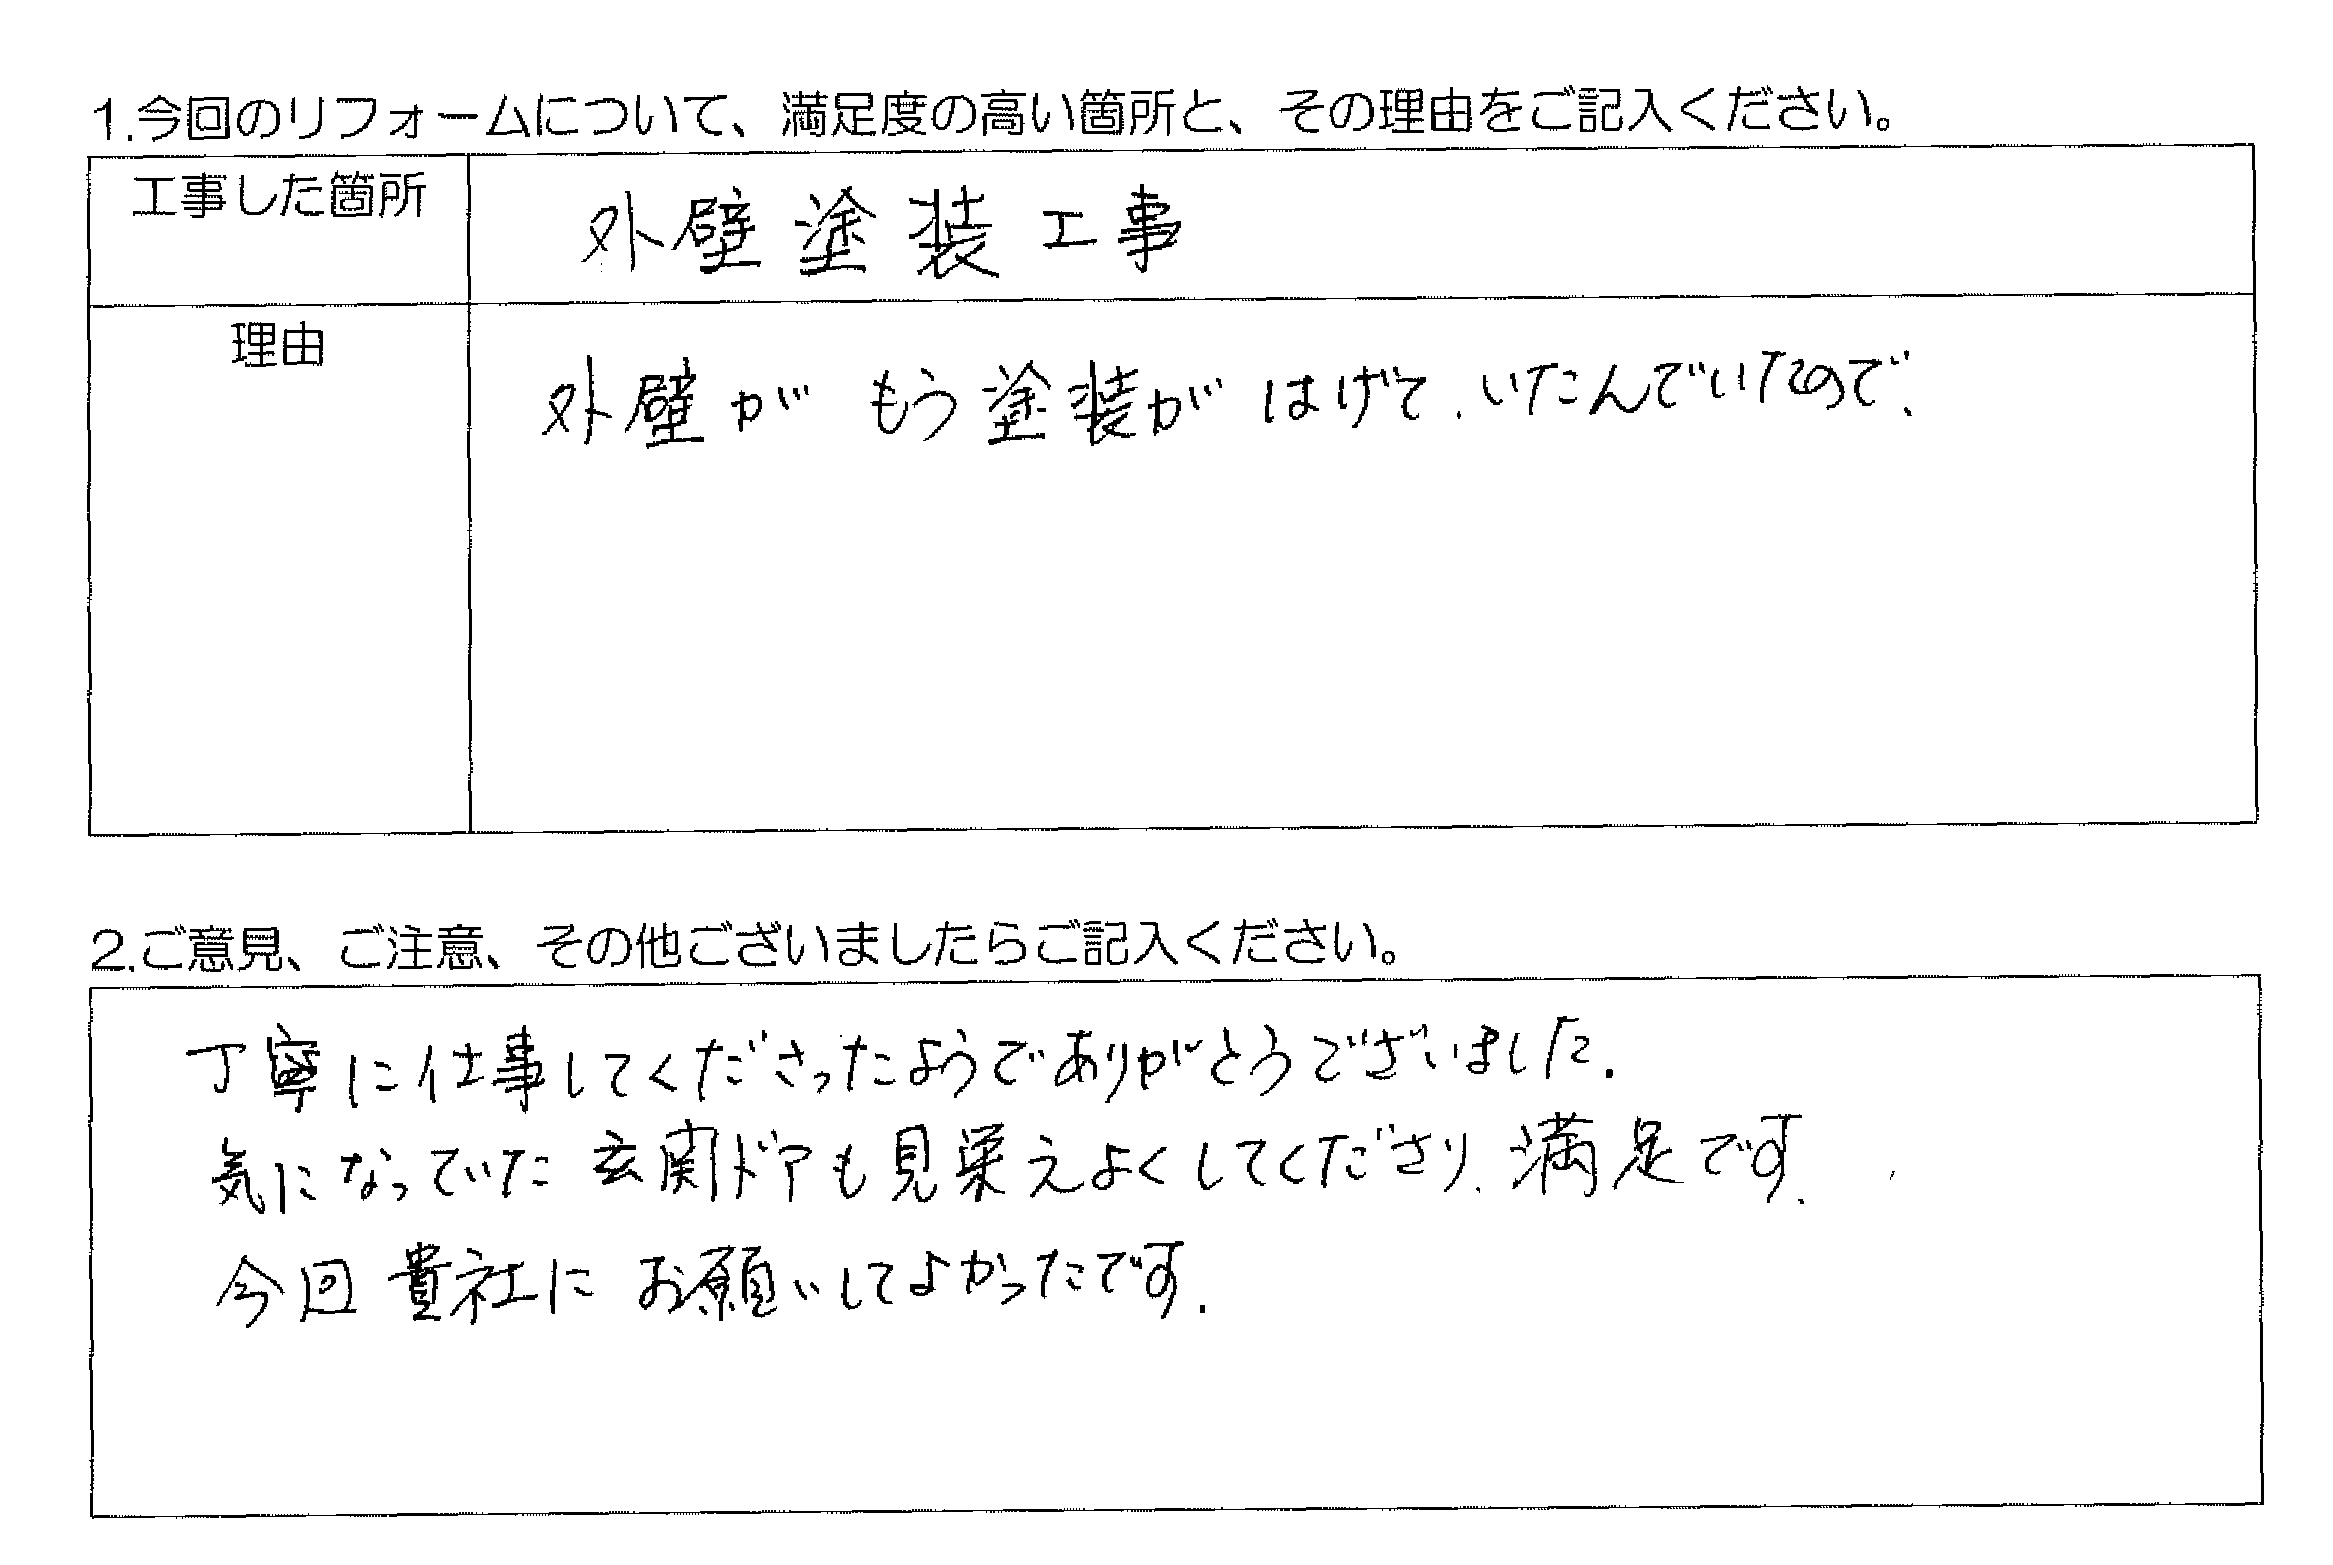 1.今回のリフォームについて、満足度の高い箇所と、その理由をご記入ください。
工事した箇所
外壁塗装工事
理由
外壁がもう塗装がはげて、いたんでいたので、
2.ご意見、ご注意、その他ございましたらご記入ください。
丁寧に仕事してくださったようでありがとうございました.
気になっていた玄関ドアも見栄えよくしてくださり、満足です.
今回貴社にお願いしてよかったです.